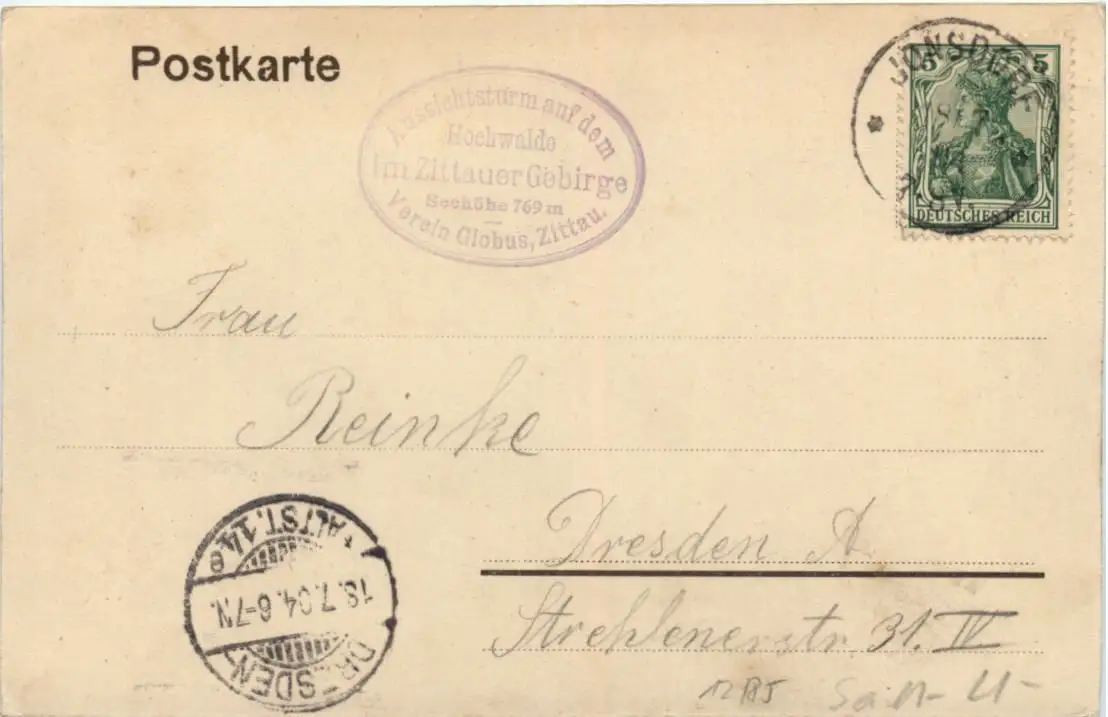 Postkarte
Aussichtsturm auf dem
Hochwalde
Im Zittauer Gebirge
Seehöhe 769 m
Verein Globus, Zittau.
JONSDORF
5 5
DEUTSCHES REICH
Frau
Reinke
Dresden A
Strehlenerstr 31. IV
DRESDEN-
ALTST. 14 e
18.7.04. 6-7N.